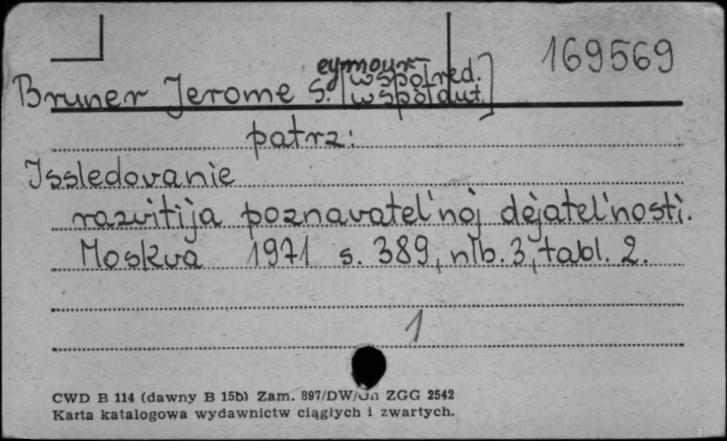 169569
eymour [współred.
Bruner Jerome S. współaut.]
patrz:
Issledovanie
razvitija poznavatel'noj dejatel'nosti.
Moskva 1971 s. 389, nlb. 3, tabl. 2.
1
CWD B 114 (dawny B 15b) Zam. 897/DW/ ZGG 2542
Karta katalogowa wydawnictw ciągłych i zwartych.